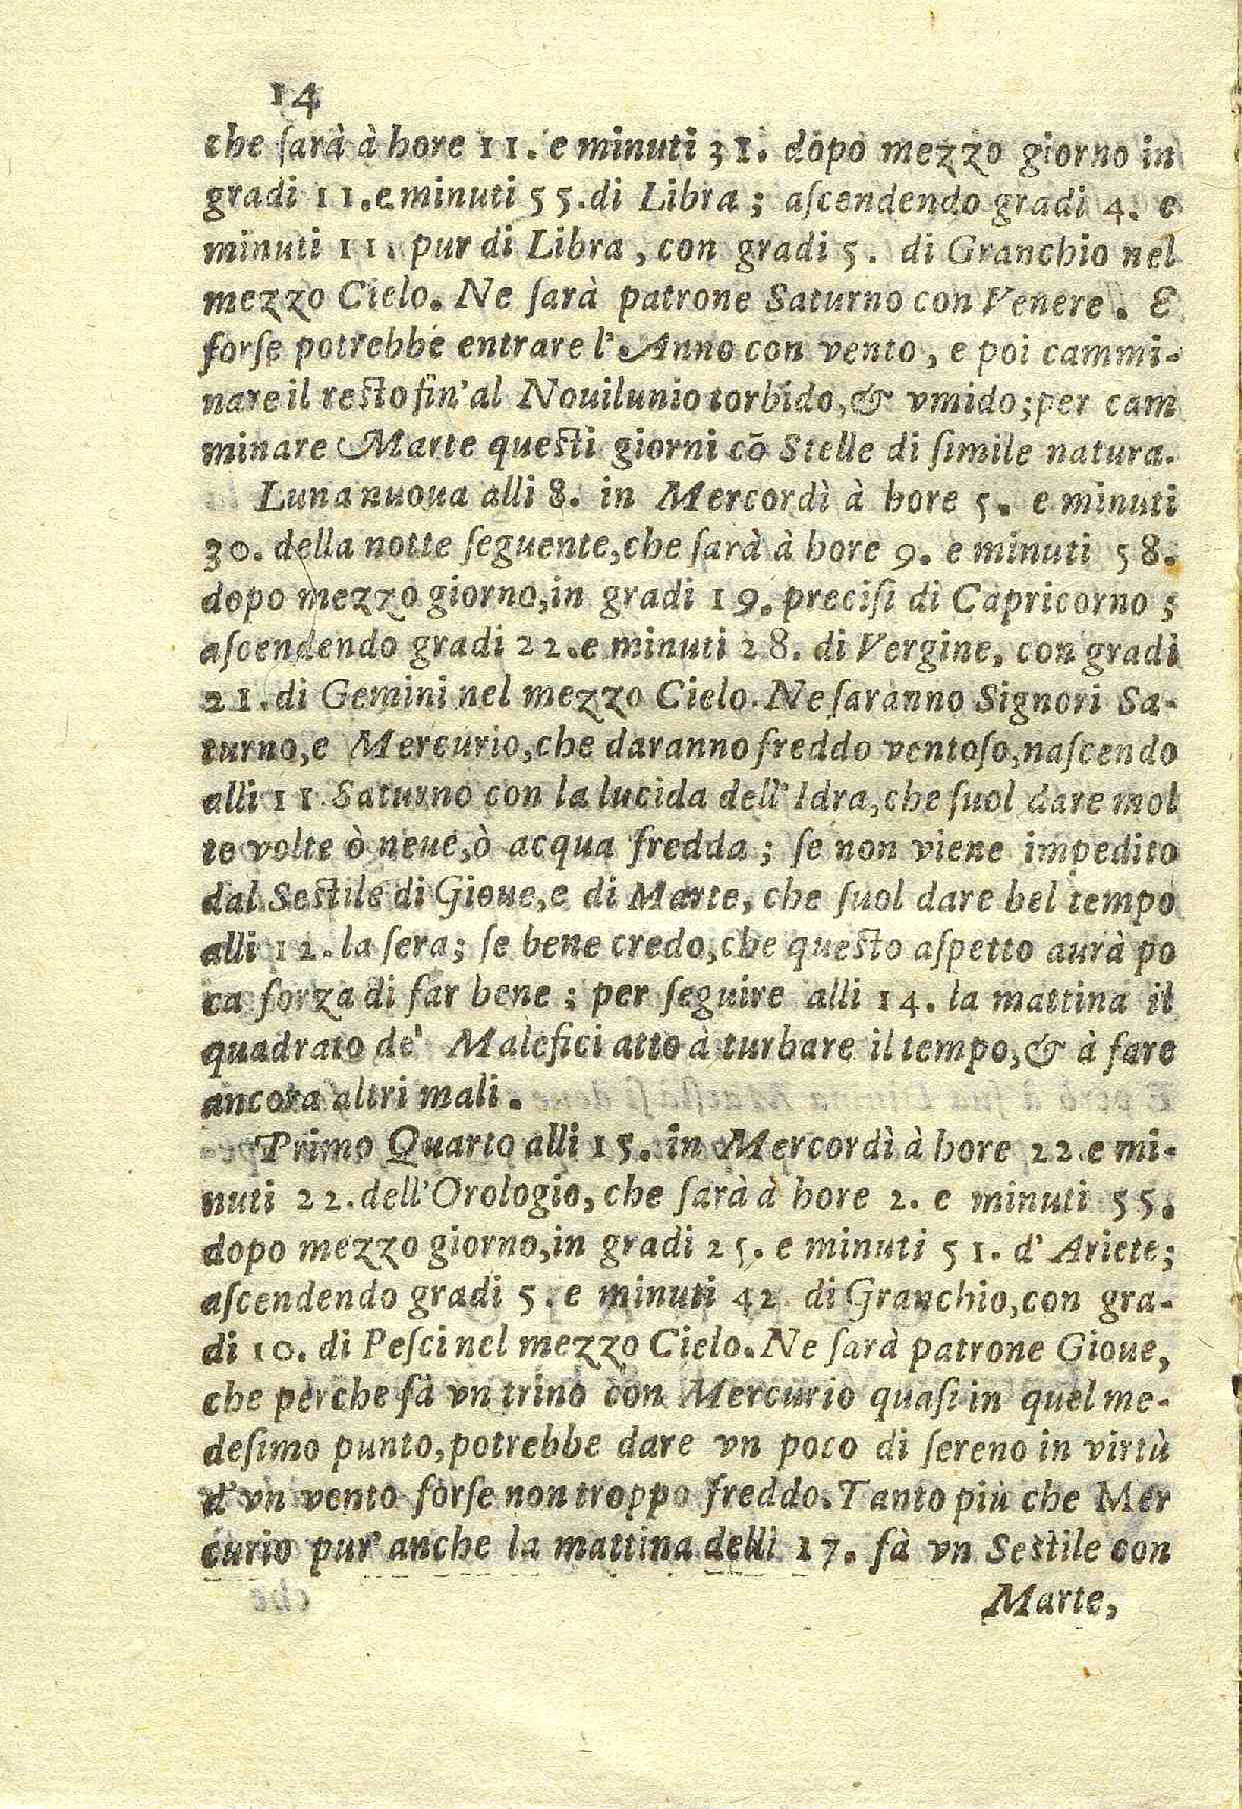 14
che ſarà à hore 11. e minuti 31. dopo mezzo giorno in
gradi 11. e minuti 55. di Libra; aſcendendo gradi 4. e
minuti 11. pur di Libra, con gradi 5. di Granchio nel
mezzo Cielo. Ne ſarà patrone Saturno con Venere. E
forſe potrebbe entrare l'Anno con vento, e poi cammi-
nare il reſto fin'al Nouilunio torbido, & vmido; per cam
minare Marte queſti giorni cō Stelle di ſimile natura.
Luna nuoua alli 8. in Mercordì à hore 5. e minuti
30. della notte ſeguente, che ſarà à hore 9. e minuti 58.
dopo mezzo giorno, in gradi 19. preciſi di Capricorno;
aſcendendo gradi 22. e minuti 28. di Vergine, con gradi
21. di Gemini nel mezzo Cielo. Ne ſaranno Signori Sa-
turno, e Mercurio, che daranno freddo ventoſo, naſcendo
alli 11 Saturno con la lucida dell'Idra, che ſuol dare mol
te volte ò neue, ò acqua fredda; ſe non viene impedito
dal Seſtile di Gioue, e di Marte, che ſuol dare bel tempo
alli 12. la ſera; ſe bene credo, che queſto aſpetto aurà po
ca forza di far bene; per ſeguire alli 14. la mattina il
quadrato de' Malefici atto à turbare il tempo, & à fare
ancora altri mali.
Primo Quarto alli 15. in Mercordì à hore 22. e mi-
nuti 22. dell'Orologio, che ſarà à hore 2. e minuti 55.
dopo mezzo giorno, in gradi 25. e minuti 51. d'Ariete;
aſcendendo gradi 5. e minuti 42 di Granchio, con gra-
di 10. di Peſci nel mezzo Cielo. Ne ſarà patrone Gioue,
che perche fà vn trino con Mercurio quaſi in quel me-
deſimo punto, potrebbe dare vn poco di ſereno in virtù
d'vn vento forſe non troppo freddo. Tanto più che Mer
curio pur'anche la mattina delli 17. fà vn Seſtile con
Marte,